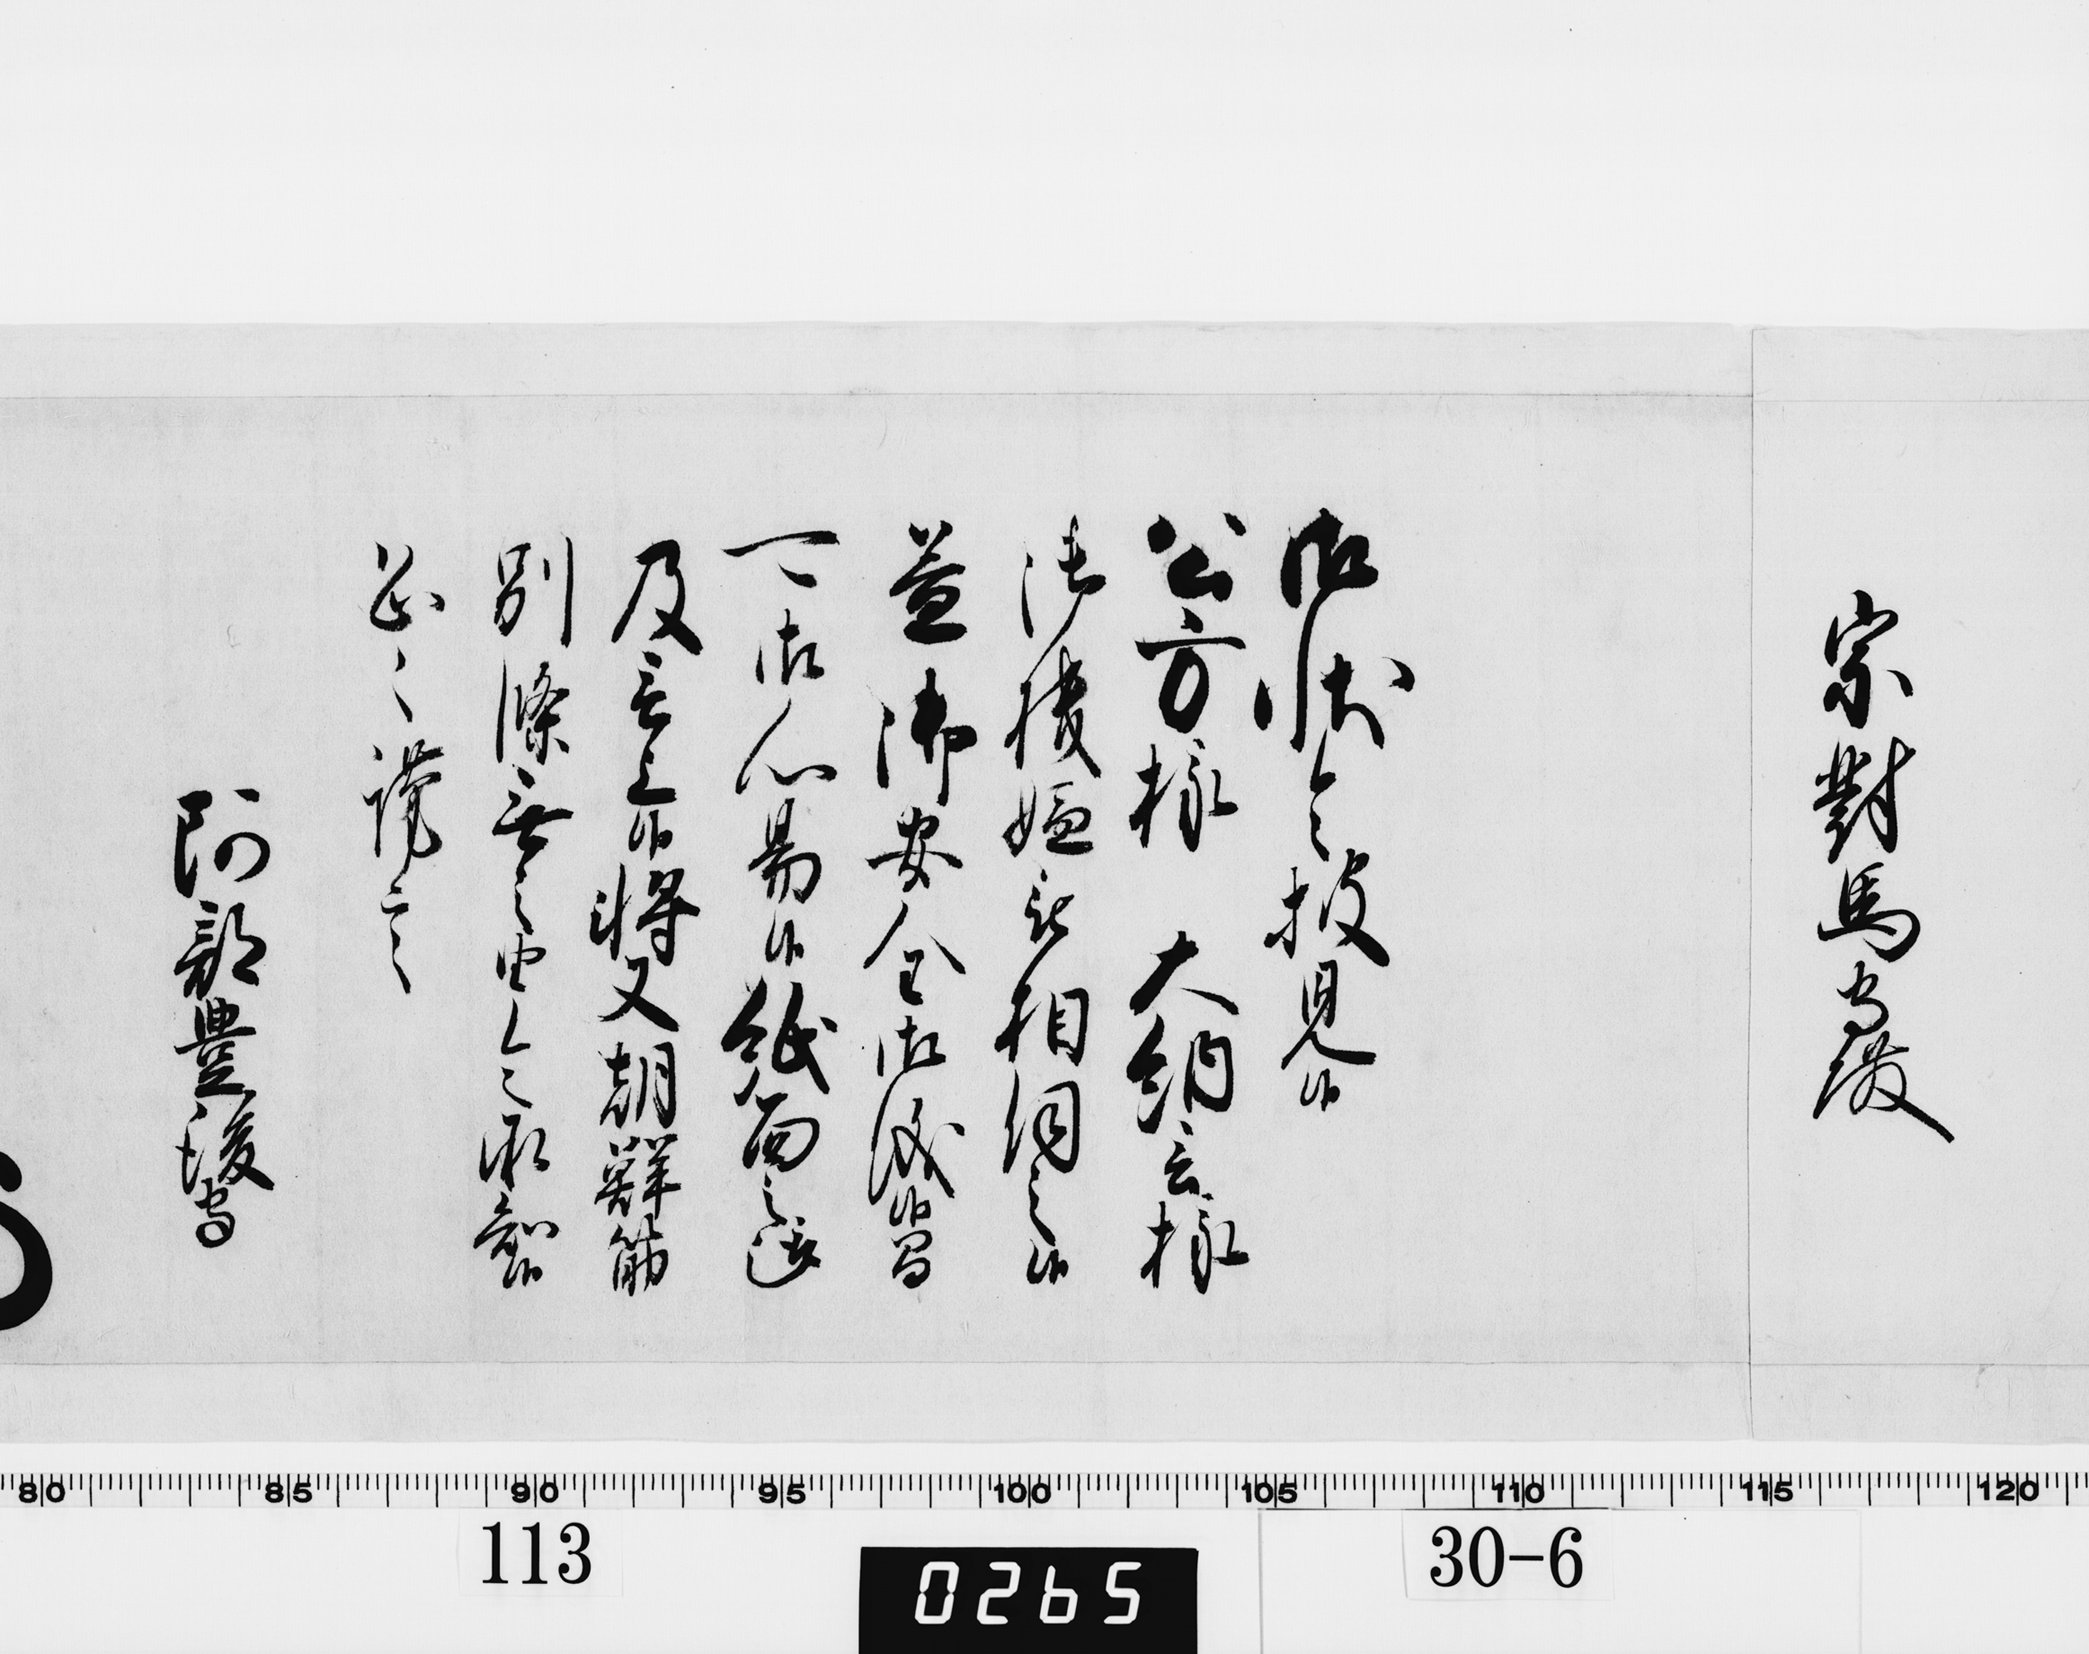 宗對馬守殿
御状令披見候
公方様　大納言様
御機嫌被相伺之候
益御安全御儀候間
可御心易候紙面之趣
及言上候将又朝鮮筋
別條無之由令承知候
恐々謹言
阿部豊後守
80 85 90 95 100 105 110 115 120
113
0265
30-6